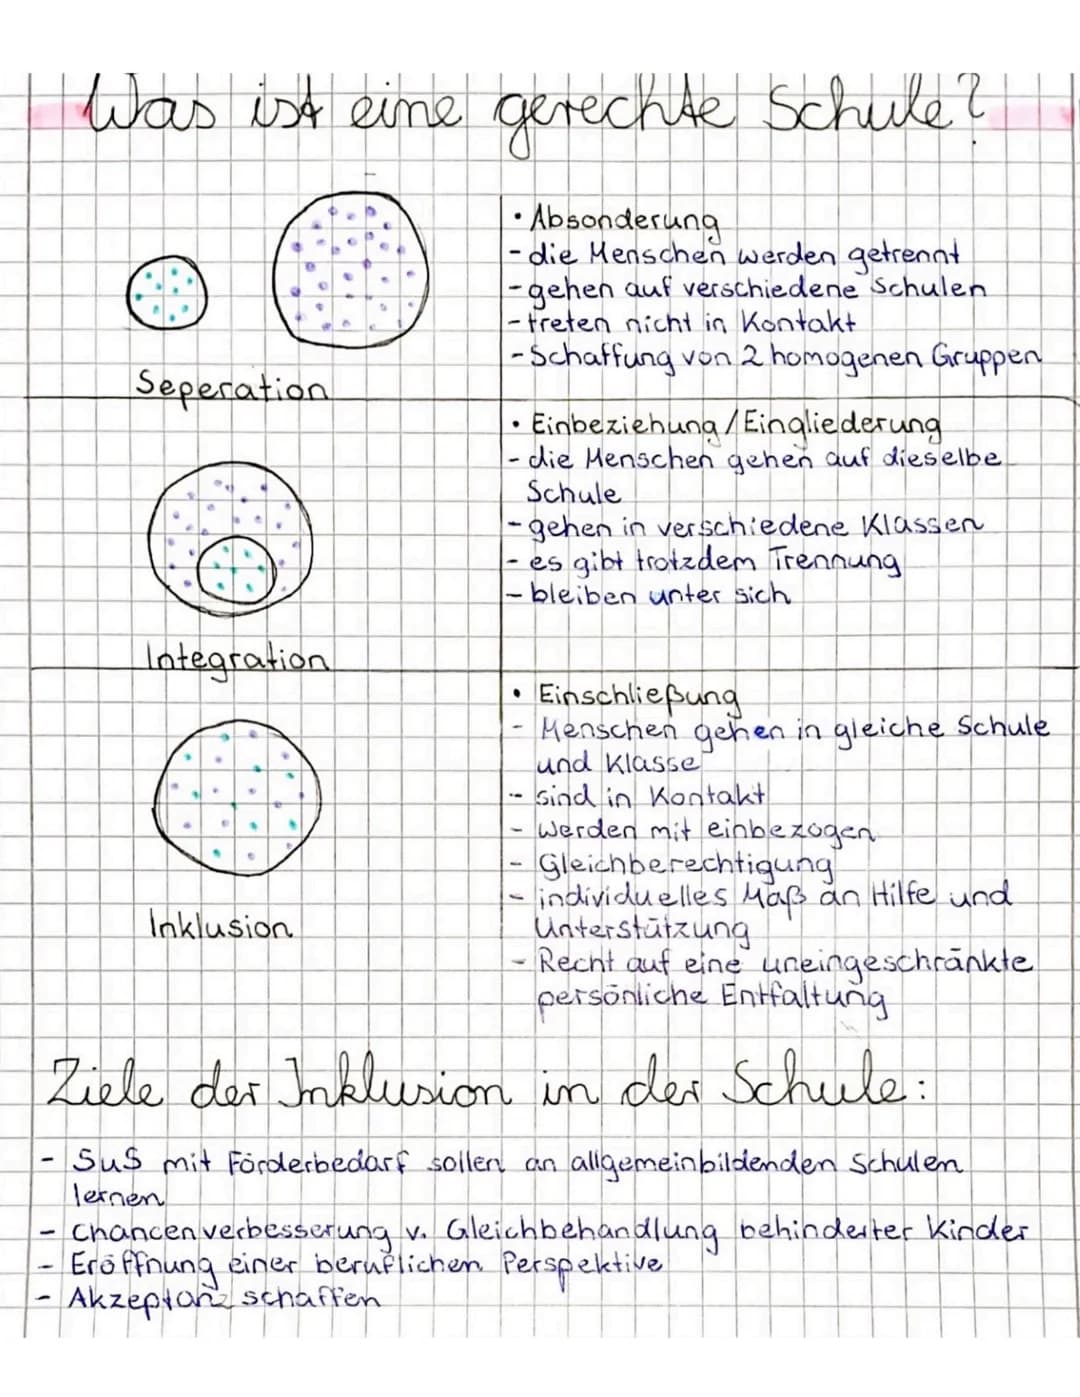 Was ist eine gerechte Schule?
Seperation
• Absonderung
- die Menschen werden getrennt
- gehen auf verschiedene Schulen
- treten nicht in Kontakt
- Schaffung von 2 homogenen Gruppen
Integration
• Einbeziehung / Eingliederung
- die Menschen gehen auf dieselbe
Schule
- gehen in verschiedene Klassen
- es gibt trotzdem Trennung
- bleiben unter sich
Inklusion
• Einschließung
- Menschen gehen in gleiche Schule
und Klasse
- sind in Kontakt
- werden mit einbezogen
- Gleichberechtigung
- individuelles Maß an Hilfe und
Unterstützung
- Recht auf eine uneingeschränkte
persönliche Entfaltung
Ziele der Inklusion in der Schule:
- SuS mit Förderbedarf sollen an allgemeinbildenden Schulen
lernen
- Chancenverbesserung v. Gleichbehandlung behinderter Kinder
- Eröffnung einer beruflichen Perspektive
- Akzeptanz schaffen